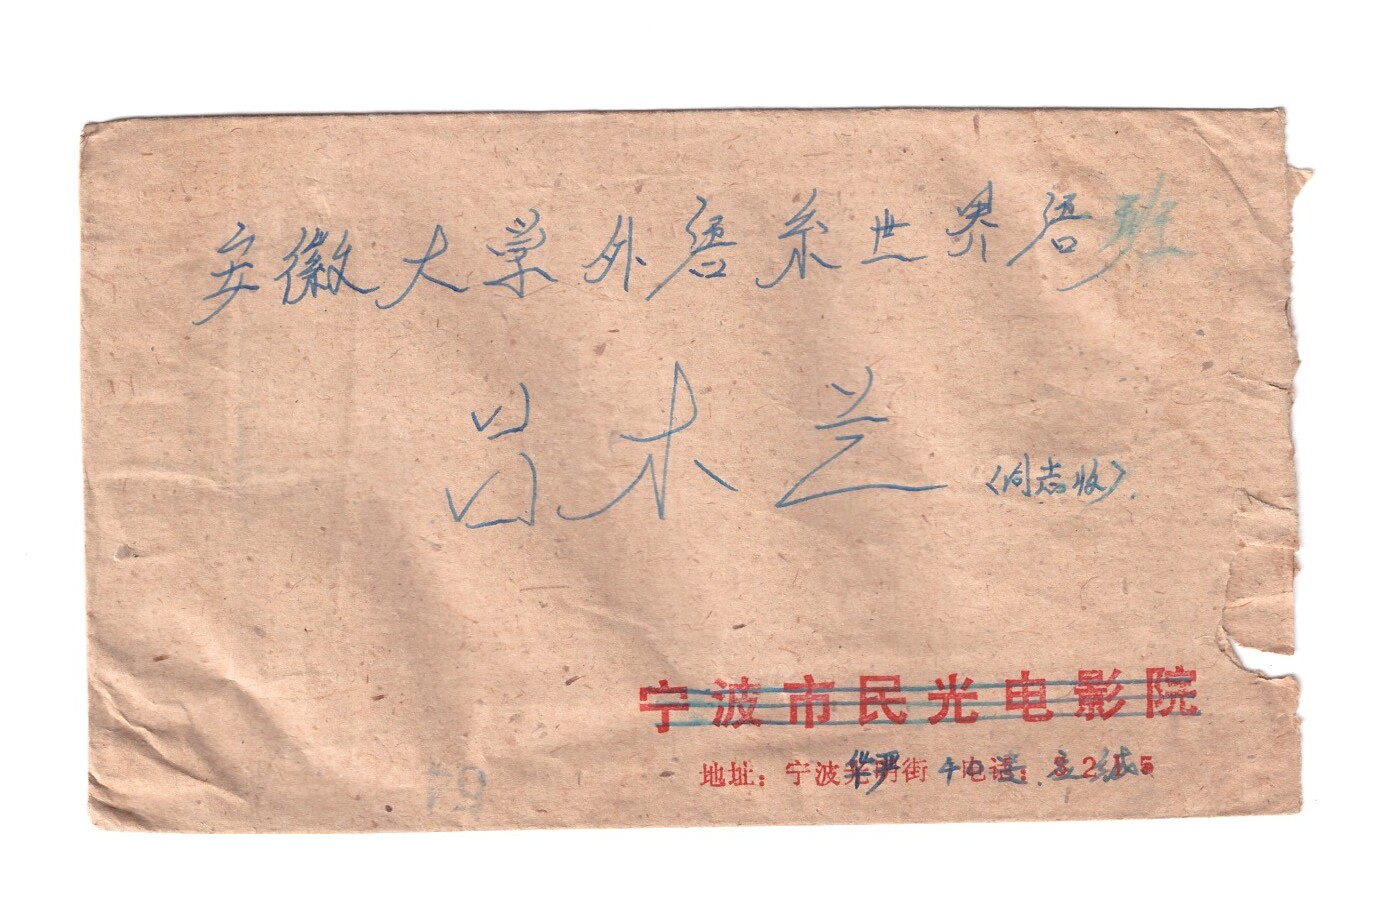 安徽大学外语系世界语班
吕木兰 (同志收).
宁波市民光电影院
地址：宁波 街 电话：3215